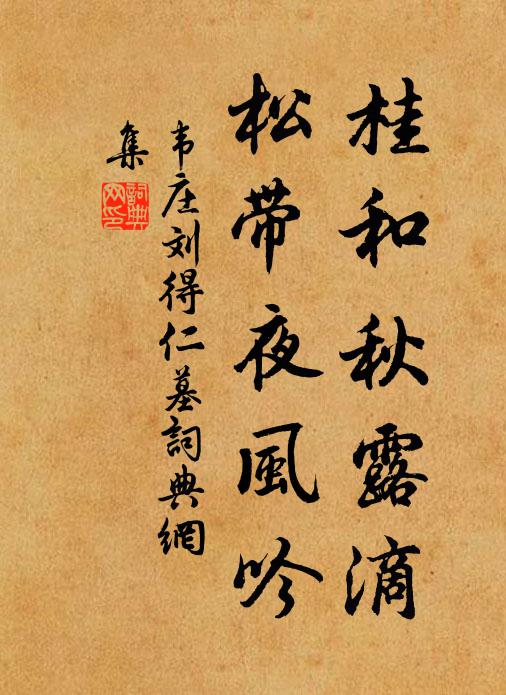 桂和秋露滴
松带夜風吟
韦庄刘得仁墓詞典網
集
詞典网印